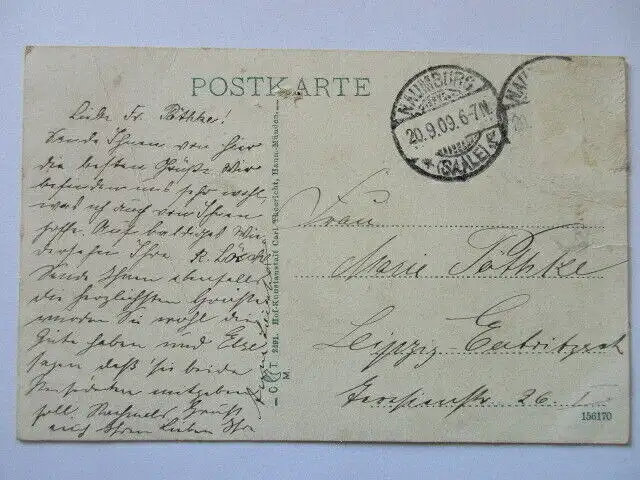 POSTKARTE
NAUMBURG
20.9.09. 6-7N.
(SAALE)
Liebe Fr. Pöthke!
Sende Ihnen von hier
die besten Grüße. Wir
befinden uns sehr wohl,
was ich auch von Ihnen
hoffe. Auf baldiges Wie
dersehn Ihre R.
Sende Ihnen ebenfalls
die herzlichsten Grüße
würden Sie wohl die
Güte haben und Else
sagen daß sie beide
mitgeben
soll. Nochmals Gruß
auch Ihren Lieben Ihre
C T 2491. Hof-Kunstanstalt Carl Thoericht, Hann.-Münden.
M
Frau
Marie Pöthke
Leipzig-Eutritzsch
26
156170